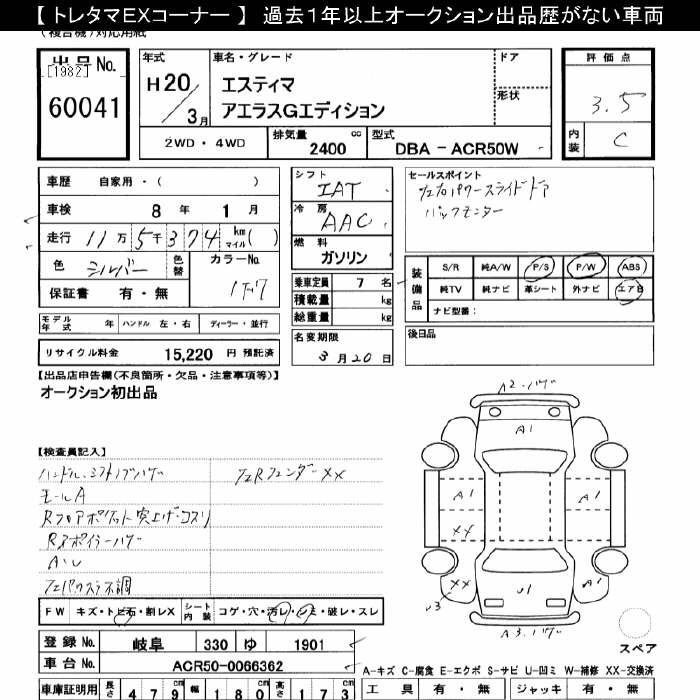 【 トレタマEXコーナー 】 過去１年以上オークション出品歴がない車両
(複合機)対応用紙
出品 No.
[1982]
60041
年式
H20/3月
車名・グレード
エスティマ
アエラスGエディション
ドア
形状
評価点
3.5
内装 C
2WD・4WD
排気量 2400 cc
型式 DBA－ACR50W
車歴 自家用・( )
車検 8年 1月
走行 11万5千374 km マイル( )
色 シルバー 色替
カラーNo. 1F7
保証書 有・無
シフト IAT
冷房 AAC
燃料 ガソリン
乗車定員 7 名
積載量 kg
総重量 kg
セールスポイント
左右パワースライドドア
バックモニター
装備品
S/R 純A/W P/S P/W ABS
純TV 純ナビ 革シート 外ナビ エアB
ナビ型番：
モデル年式 年 ハンドル 左・右 ディーラー・並行
リサイクル料金 15,220 円 預託済
名変期限
3月20日
後日品
【出品店申告欄(不良箇所・欠品・注意事項等)】
オークション初出品
【検査員記入】
ハンドル・シフトノブハゲ
モールA
Rフロアポケット突上げ・コスリ
A・U
左Rフェンダー XX
A2・ハゲ
A1
A1
A1
XX
XX
U3
U1
A1
A3・ハゲ
スペア
FW キズ・トビ石・割レX シート内装 コゲ・穴・汚レ・シミ・破レ・スレ
登録 No. 岐阜 330 ゆ 1901
車台 No. ACR50-0066362
A-キズ C-腐食 E-エクボ S-サビ U-凹ミ W-補修 XX-交換済
車庫証明用 長さ 479 幅 180 高さ 173
工具 有・無 ジャッキ 有・無